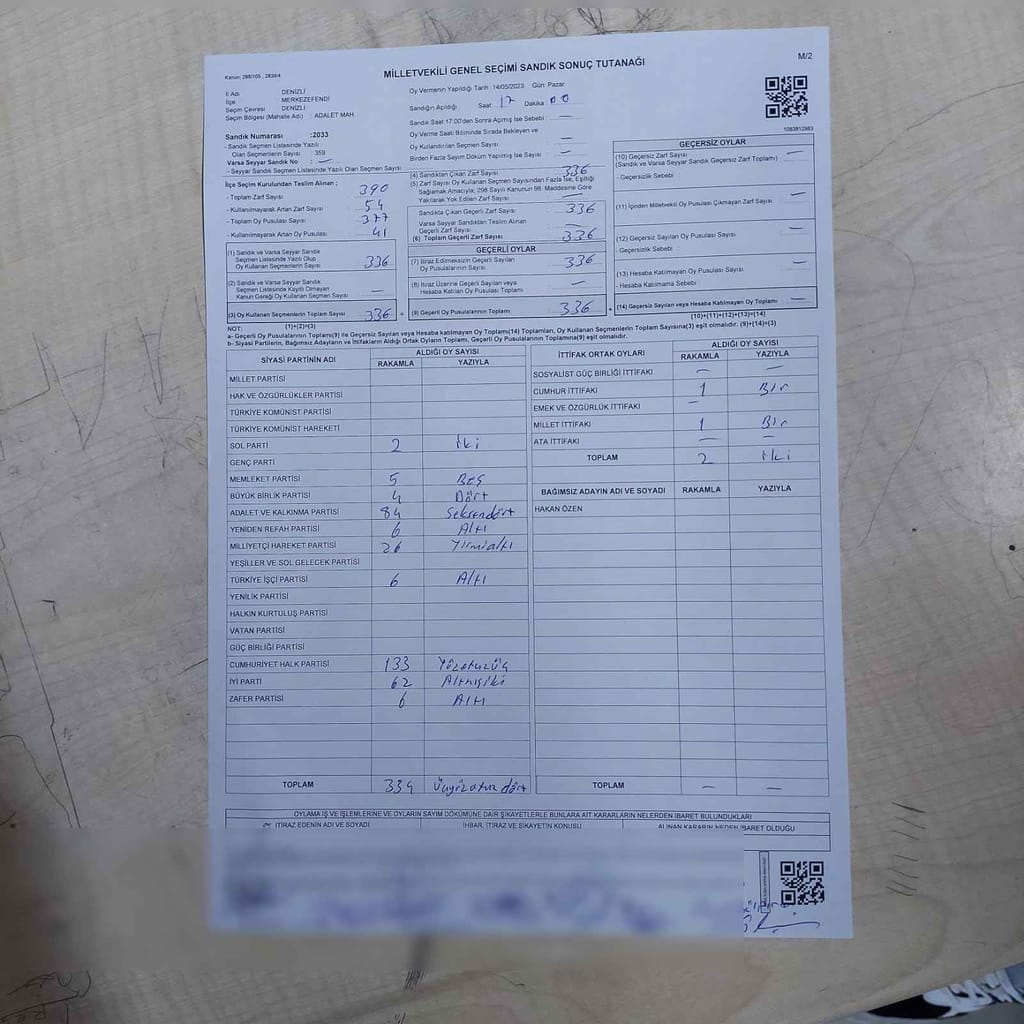 Kanun: 298/105 , 2839/4
MİLLETVEKİLİ GENEL SEÇİMİ SANDIK SONUÇ TUTANAĞI
M/2
İl Adı DENİZLİ
İlçe MERKEZEFENDİ
Seçim Çevresi DENİZLİ
Seçim Bölgesi (Mahalle Adı) : ADALET MAH.
Oy Vermenin Yapıldığı Tarih :14/05/2023 Gün: Pazar
Sandığın Açıldığı Saat 17 Dakika 00
Sandık Saat 17:00'den Sonra Açmış İse Sebebi : —
Oy Verme Saati Bitiminde Sırada Bekleyen ve
Oy Kullandırılan Seçmen Sayısı —
Birden Fazla Sayım Döküm Yapılmış İse Sayısı —
1083812983
Sandık Numarası :2033
- Sandık Seçmen Listesinde Yazılı
Olan Seçmenlerin Sayısı 359
Varsa Seyyar Sandık No : —
- Seyyar Sandık Seçmen Listesinde Yazılı Olan Seçmen Sayısı
İlçe Seçim Kurulundan Teslim Alınan ;
- Toplam Zarf Sayısı 390
- Kullanılmayarak Artan Zarf Sayısı 54
- Toplam Oy Pusulası Sayısı 377
- Kullanılmayarak Artan Oy Pusulası 41
(1) Sandık ve Varsa Seyyar Sandık
Seçmen Listesinde Yazılı Olup
Oy Kullanan Seçmenlerin Sayısı 336
(2) Sandık ve Varsa Seyyar Sandık
Seçmen Listesinde Kayıtlı Olmayan
Kanun Gereği Oy Kullanan Seçmen Sayısı —
(3) Oy Kullanan Seçmenlerin Toplam Sayısı 336 =
(1)+(2)=(3)
(4) Sandıktan Çıkan Zarf Sayısı 336
(5) Zarf Sayısı Oy Kullanan Seçmen Sayısından Fazla İse, Eşitliği
Sağlamak Amacıyla; 298 Sayılı Kanunun 98. Maddesine Göre
Yakılarak Yok Edilen Zarf Sayısı —
Sandıkta Çıkan Geçerli Zarf Sayısı 336
Varsa Seyyar Sandıktan Teslim Alınan
Geçerli Zarf Sayısı —
(6) Toplam Geçerli Zarf Sayısı 336
GEÇERLİ OYLAR
(7) İtiraz Edilmeksizin Geçerli Sayılan
Oy Pusulalarının Sayısı 336
(8) İtiraz Üzerine Geçerli Sayılan veya
Hesaba Katılan Oy Pusulası Toplamı —
(9) Geçerli Oy Pusulalarının Toplamı 336 +
GEÇERSİZ OYLAR
(10) Geçersiz Zarf Sayısı —
(Sandık ve Varsa Seyyar Sandık Geçersiz Zarf Toplamı)
- Geçersizlik Sebebi :
(11) İçinden Milletvekili Oy Pusulası Çıkmayan Zarf Sayısı —
(12) Geçersiz Sayılan Oy Pusulası Sayısı —
- Geçersizlik Sebebi :
(13) Hesaba Katılmayan Oy Pusulası Sayısı —
- Hesaba Katılmama Sebebi
(14) Geçersiz Sayılan veya Hesaba Katılmayan Oy Toplamı —
(10)+(11)+(12)+(13)=(14)
NOT:
a- Geçerli Oy Pusulalarının Toplamı(9) ile Geçersiz Sayılan veya Hesaba katılmayan Oy Toplamı(14) Toplamları, Oy Kullanan Seçmenlerin Toplam Sayısına(3) eşit olmalıdır. (9)+(14)=(3)
b- Siyasi Partilerin, Bağımsız Adayların ve İttifakların Aldığı Ortak Oyların Toplamı, Geçerli Oy Pusulalarının Toplamına(9) eşit olmalıdır.
SİYASİ PARTİNİN ADI ALDIĞI OY SAYISI
RAKAMLA YAZIYLA
MİLLET PARTİSİ
HAK VE ÖZGÜRLÜKLER PARTİSİ
TÜRKİYE KOMÜNİST PARTİSİ
TÜRKİYE KOMÜNİST HAREKETİ
SOL PARTİ 2 İki
GENÇ PARTİ
MEMLEKET PARTİSİ 5 BEŞ
BÜYÜK BİRLİK PARTİSİ 4 Dört
ADALET VE KALKINMA PARTİSİ 84 Seksendört
YENİDEN REFAH PARTİSİ 6 Altı
MİLLİYETÇİ HAREKET PARTİSİ 26 Yirmialtı
YEŞİLLER VE SOL GELECEK PARTİSİ
TÜRKİYE İŞÇİ PARTİSİ 6 Altı
YENİLİK PARTİSİ
HALKIN KURTULUŞ PARTİSİ
VATAN PARTİSİ
GÜÇ BİRLİĞİ PARTİSİ
CUMHURİYET HALK PARTİSİ 133 Yüzotuzüç
İYİ PARTİ 62 Altmışiki
ZAFER PARTİSİ 6 Altı
TOPLAM 334 Üçyüzotuz dört
İTTİFAK ORTAK OYLARI ALDIĞI OY SAYISI
RAKAMLA YAZIYLA
SOSYALİST GÜÇ BİRLİĞİ İTTİFAKI — —
CUMHUR İTTİFAKI 1 Bir
EMEK VE ÖZGÜRLÜK İTTİFAKI —
MİLLET İTTİFAKI 1 Bir
ATA İTTİFAKI — —
TOPLAM 2 İki
BAĞIMSIZ ADAYIN ADI VE SOYADI RAKAMLA YAZIYLA
HAKAN ÖZEN
TOPLAM — —
OYLAMA İŞ VE İŞLEMLERİNE VE OYLARIN SAYIM DÖKÜMÜNE DAİR ŞİKAYETLERLE BUNLARA AİT KARARLARIN NELERDEN İBARET BULUNDUKLARI
İTİRAZ EDENİN ADI VE SOYADI İHBAR, İTİRAZ VE ŞİKAYETİN KONUSU ALINAN KARARIN NEDEN İBARET OLDUĞU